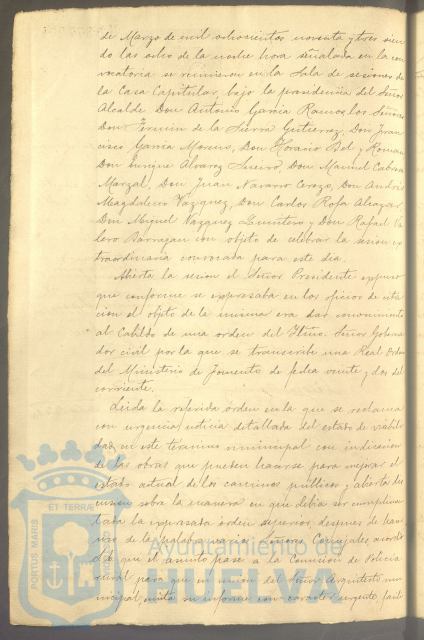 de Marzo de mil ochocientos noventa y tres sien
do las ocho de la noche hora señalada en la con
vocatoria se reunieron en la Sala de sesiones de
la Casa Capitular bajo la presidencia del Señor
Alcalde Don Antonio Garcia Ramos, los Señores
Don Fermin de la Sierra Gutierrez, Don Fran
cisco Garcia Morens, Don Horacio Bel y Roman
Don Enrique Alvarez Don Manuel Cabeza
Marzal, Don Juan Navarro Cerezo, Don Andrés
Magdaleno Vazquez, Don Carlos Rofa Alcazar
Don Miguel Vazquez Quintero y Don Rafael Va
lero Barragan con objeto de celebrar la sesion ex
traordinaria convocada para este dia.
Abierta la sesion el Señor Presidente expuso
que conforme se expresaba en los oficios de cita
cion el objeto de la misma era dar conocimiento
al Cabildo de una orden del Iltmo. Señor Goberna
dor civil por la que se transcribe una Real Orden
del Ministerio de Fomento de fecha veinte y dos del
corriente.
Leida la referida orden en la que se reclama
con urgencia noticia detallada del estado de viabili
dad en este termino municipal con indicacion
de las obras que pueden hacerse para mejorar el
estado actual de los caminos publicos y abierta dis
cusion sobre la manera en que debia ser cumplimen
tada la expresada orden superior, despues de hacer
uso de la palabra varios Señores Concejales acordó
se que el asunto pase a la Comision de Policia
rural para que en union del Señor Arquitecto mu
nicipal emita su informe con caracter urgente
PORTUS MARIS
ET TERRAE
Ayuntamiento de
HUELVA